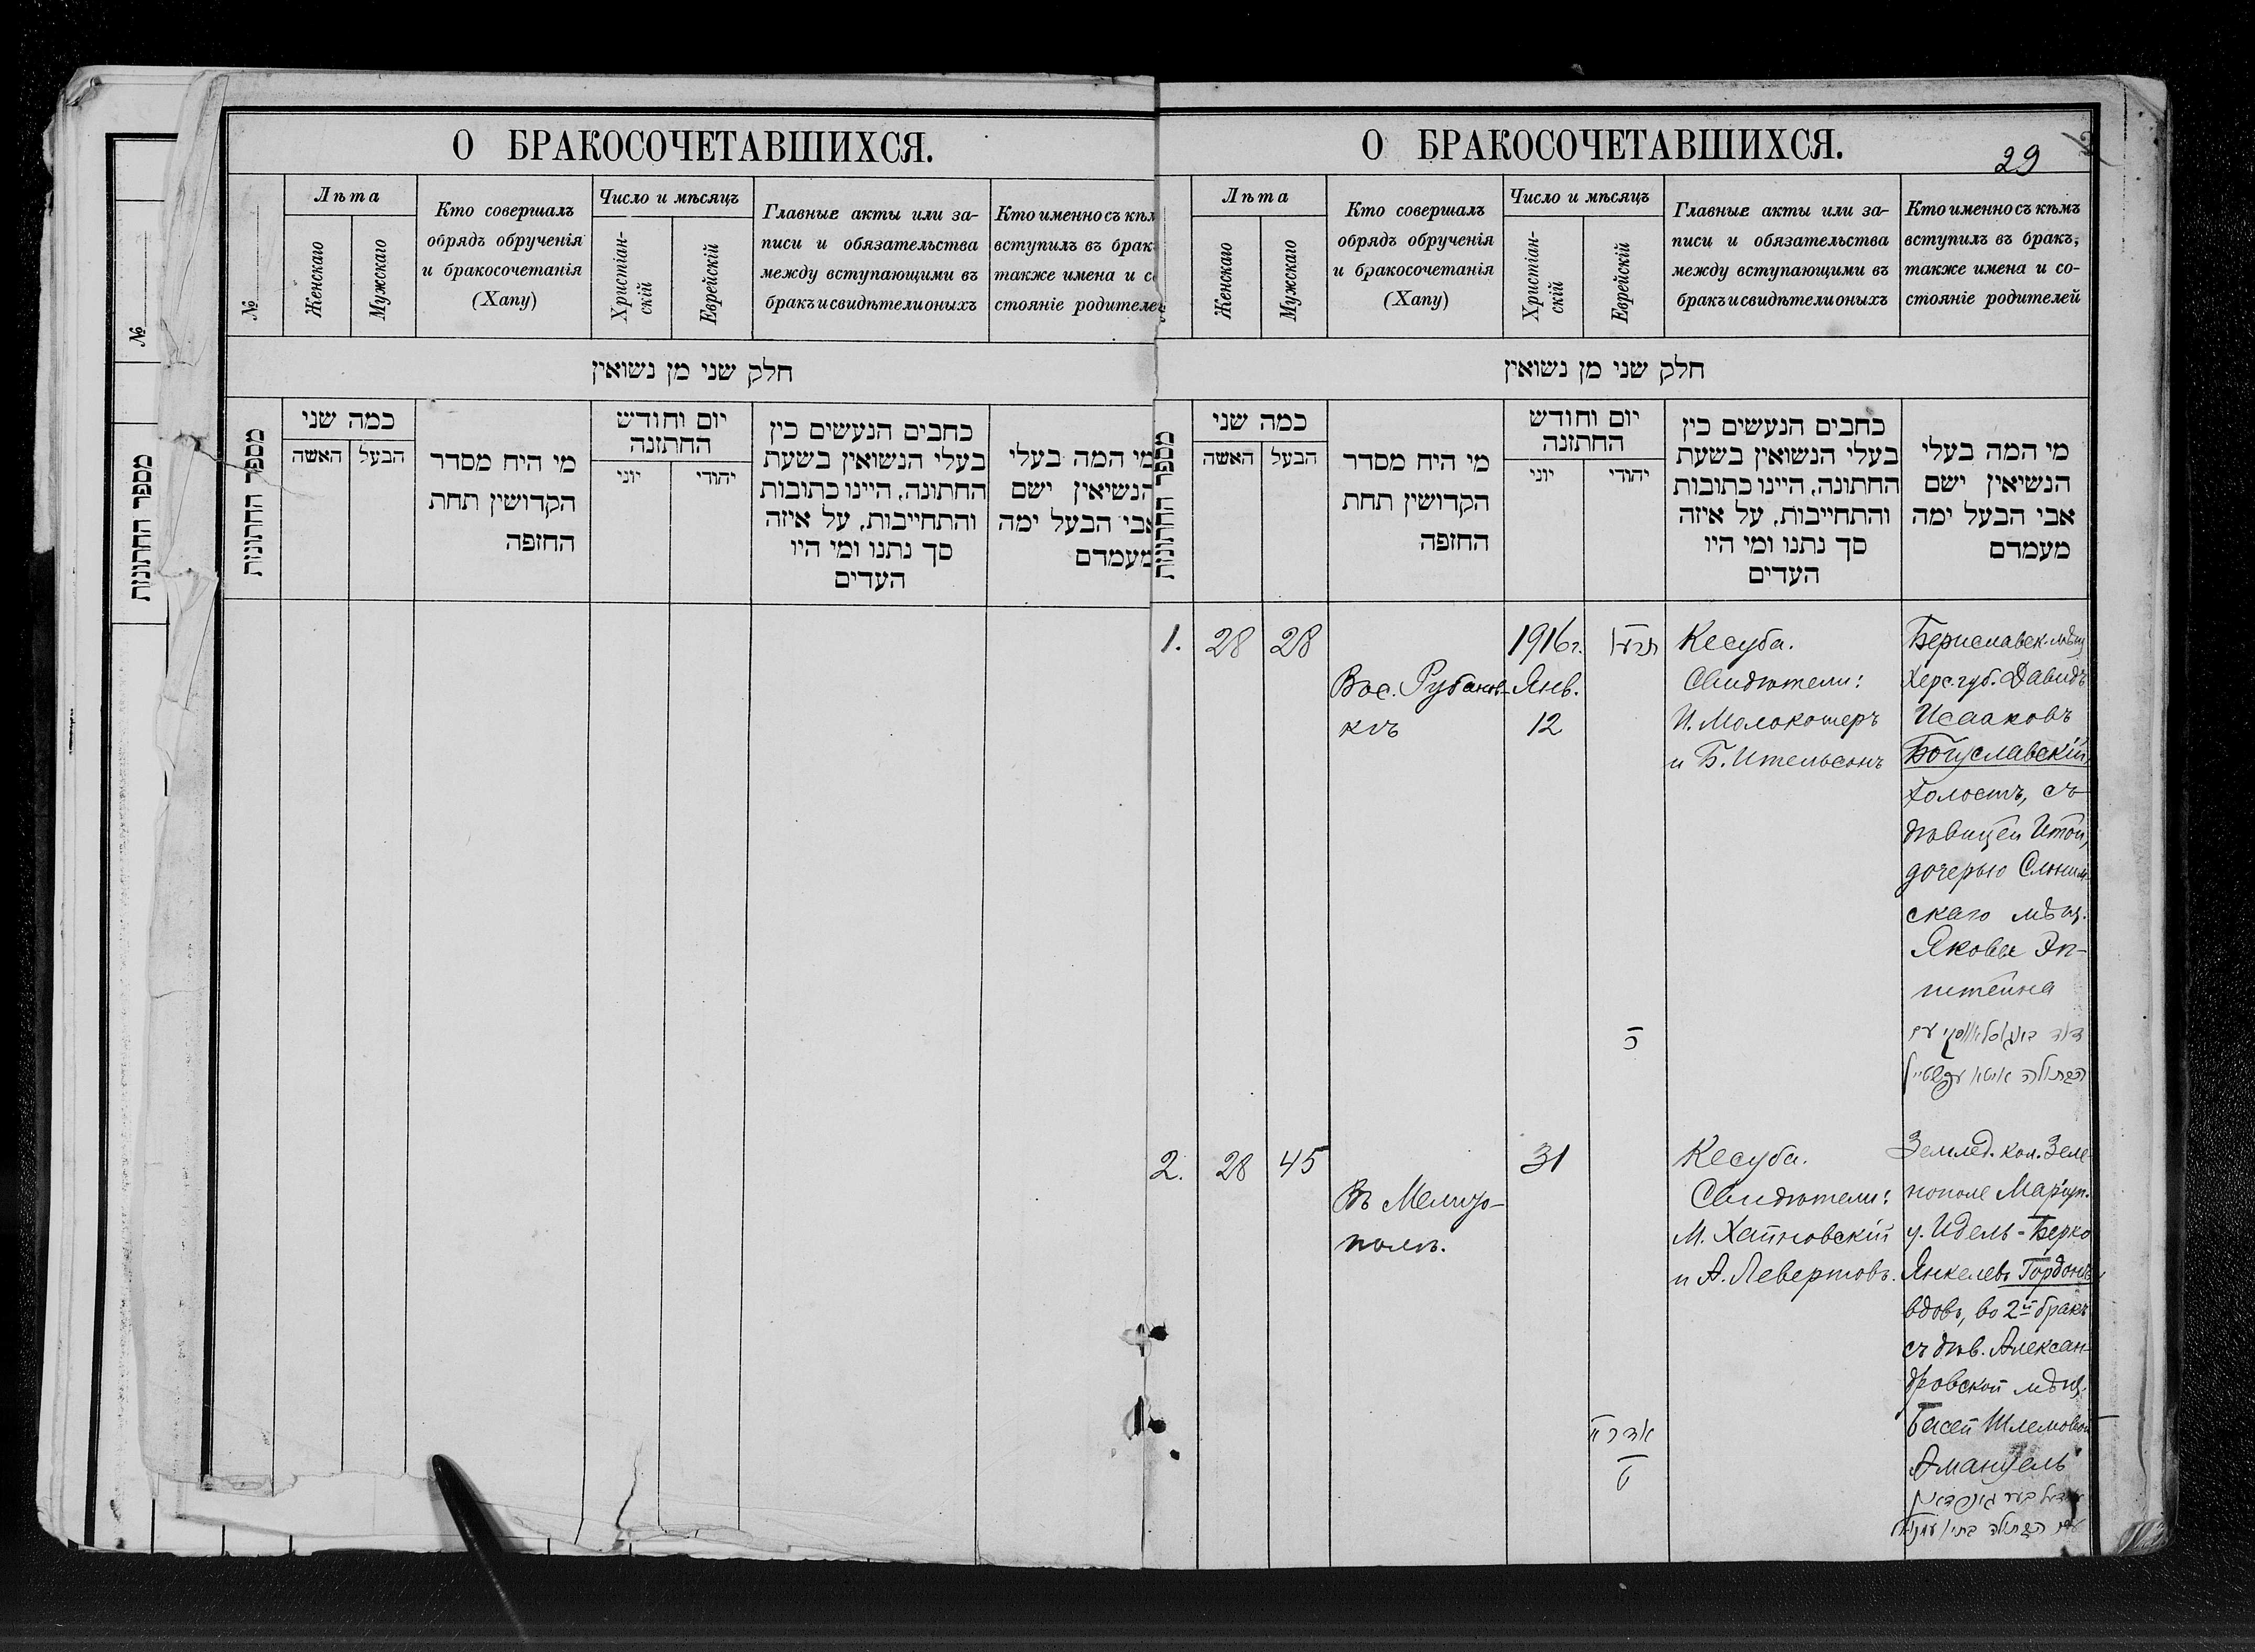 О БРАКОСОЧЕТАВШИХСЯ.
№
Лѣта
Женскаго
Мужскаго
Кто совершалъ
обрядъ обрученія
и бракосочетанія
(Хапу)
Число и мѣсяцъ
Христіан-
скій
Еврейскій
Главные акты или за-
писи и обязательства
между вступающими въ
бракъ и свидѣтели оныхъ
Кто именно съ кѣм
вступилъ въ брак
также имена и со
стояніе родителей
חלק שני מן נשואין
מספר החתונות
כמה שני
האשה
הבעל
מי היח מסדר
הקדושין תחת
החופה
יום וחודש
החתונה
יוני
יהודי
כתבים הנעשים בין
בעלי הנשואין בשעת
החתונה, היינו כתובות
והתחייבות, על איזה
סך נתנו ומי היו
העדים
מי המה בעלי
הנשיאין ישם
אבי הבעל ימה
מעמדם
№
מספר החתונות
О БРАКОСОЧЕТАВШИХСЯ.
29
Лѣта
Женскаго
Мужскаго
Кто совершалъ
обрядъ обрученія
и бракосочетанія
(Хапу)
Число и мѣсяцъ
Христіан-
скій
Еврейскій
Главные акты или за-
писи и обязательства
между вступающими въ
бракъ и свидѣтели оныхъ
Кто именно съ кѣмъ
вступилъ въ бракъ,
также имена и со-
стояніе родителей
חלק שני מן נשואין
מספר החתונות
כמה שני
האשה
הבעל
מי היח מסדר
הקדושין תחת
החופה
יום וחודש
החתונה
יוני
יהודי
כתבים הנעשים בין
בעלי הנשואין בשעת
החתונה, היינו כתובות
והתחייבות, על איזה
סך נתנו ומי היו
העדים
מי המה בעלי
הנשיאין ישם
אבי הבעל ימה
מעמדם
1.
28
28
В с. Рубанов-
кѣ
1916г.
Янв.
12
תרעו
Кесуба.
Свидѣтели:
И. Молокошеръ
и Б. Ительсонъ
Бериславск. мѣщ.
Херс. губ. Давидъ
Исааковъ
Богуславскій,
холостъ, съ
дѣвицей Итой,
дочерью Слоним-
скаго мѣщ.
Якова Эп-
штейна
2.
28
45
Въ Мелито-
полѣ.
31
Кесуба.
Свидѣтели:
М. Хайновскій
и А. Левертовъ.
Землед. кол. Зеле-
нополе Маріуп.
у. Идель-Берко
Янкелевъ Гордонъ,
вдовъ, во 2й бракъ
съ дѣв. Алексан-
дровской мѣщ.
Басей Шлемовой
Эмануель